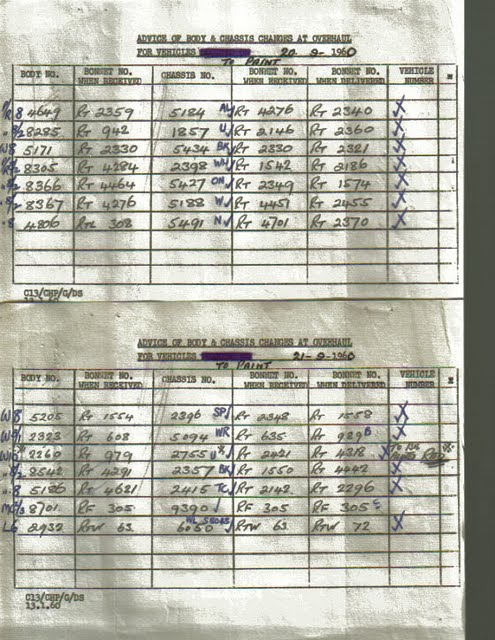 ADVICE OF BODY & CHASSIS CHANGES AT OVERHAUL
FOR VEHICLES 20-9-1960
TO PAINT
BODY NO. BONNET NO. WHEN RECEIVED CHASSIS NO. BONNET NO. WHEN RECEIVED BONNET NO. WHEN DELIVERED VEHICLE NUMBER
8 4649 RT 2359 5184 RT 4276 RT 2340 X
8285 RT 942 1857 U RT 2146 RT 2360 X
W8 5171 RT 2330 5434 BK RT 2330 RT 2321 X
8305 RT 4284 2398 WH RT 1542 RT 2186 X
8366 RT 4464 5427 ON RT 2349 RT 1574 X
8367 RT 4276 5188 W RT 4451 RT 2455 X
8 4806 RTL 308 5491 N RT 4701 RT 2370 X
C13/CHP/G/DS
13.1.60
ADVICE OF BODY & CHASSIS CHANGES AT OVERHAUL
FOR VEHICLES 21-9-1960
TO PAINT
BODY NO. BONNET NO. WHEN RECEIVED CHASSIS NO. BONNET NO. WHEN RECEIVED BONNET NO. WHEN DELIVERED VEHICLE NUMBER
W8 5205 RT 1554 2396 SP RT 2348 RT 1558 X
2323 RT 608 5094 WR RT 635 RT 929 B X
2260 RT 979 2755 RT 2421 RT 4318 X
8542 RT 4291 2357 BK RT 1550 RT 4442 X
8 5186 RT 4621 2415 TC RT 2142 RT 2296 X
8701 RF 305 9390 RF 305 RF 305 C
LG 2932 RTW 63 6050 RTW 63 RTW 72 X
C13/CHP/G/DS
13.1.60